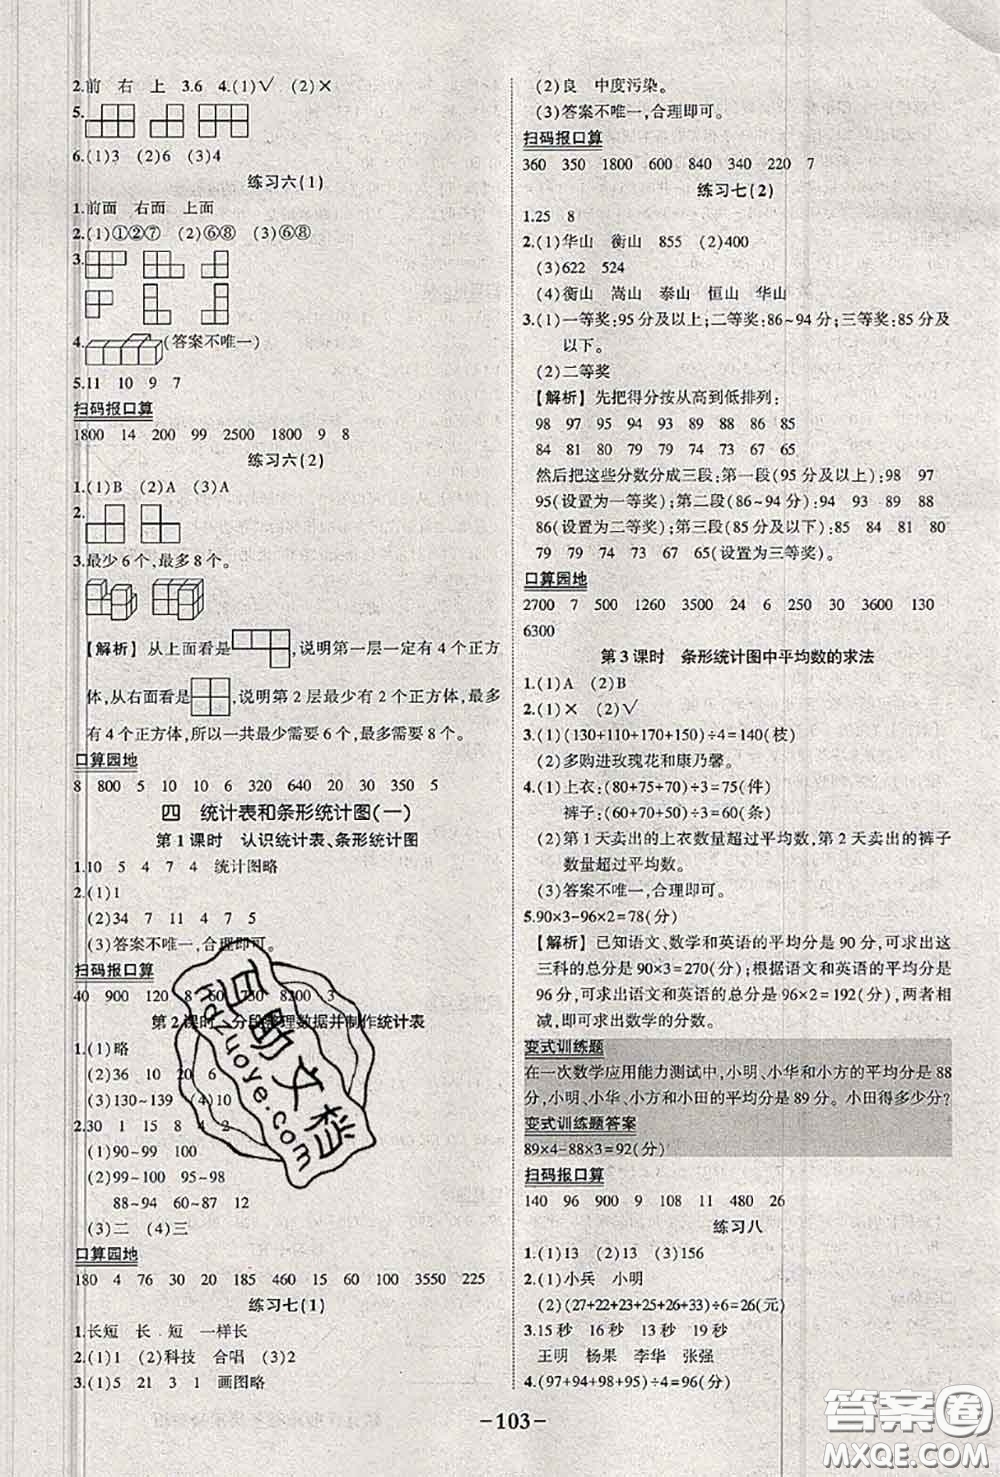 2.前 右 上 3.6 4.(1)✓ (2)✕
5.
6.(1)3 (2)6 (3)4
练习六(1)
1.前面 右面 上面
2.(1)①②⑦ (2)⑥⑧ (3)⑥⑧
3.
4.(答案不唯一)
5.11 10 9 7
扫码报口算
1800 14 200 99 2500 1800 9 8
练习六(2)
1.(1)B (2)A (3)A
2.
3.最少6个,最多8个。
【解析】从上面看是,说明第一层一定有4个正方
体,从右面看是,说明第2层最少有2个正方体,最多
有4个正方体,所以一共最少需要6个,最多需要8个。
口算园地
8 800 5 10 10 6 320 640 20 350 5
四 统计表和条形统计图(一)
第1课时 认识统计表、条形统计图
1.10 5 4 7 4 统计图略
2.(1)1
(2)34 7 11 4 7 5
(3)答案不唯一,合理即可。
扫码报口算
40 900 120 8 60 750 8200 3
第2课时 分段整理数据并制作统计表
1.(1)略
(2)3 6 8 2 1 20
(3)130~139 (4)9
2.30 1 15 8 4 2
(1)90~99
(2)99~100 95~98
88~94 60~87 12
(3)二 (4)三
口算园地
180 4 76 30 20 185 460 100 3550 225
练习七(1)
1.长短 长 短 一样长
2.(1)1 (2)科技 合唱 (3)2
3.(1)5 21 3 1 画图略
(2)良 中度污染。
(3)答案不唯一,合理即可。
扫码报口算
360 350 1800 600 840 340 220 7
练习七(2)
1.25 8
2.(1)华山 衡山 855 (2)400
(3)622 524
(4)衡山 嵩山 泰山 恒山 华山
3.(1)一等奖:95分及以上;二等奖:86~94分;三等奖:85分及
以下。
(2)二等奖
【解析】先把得分按从高到低排列:
98 97 95 94 93 89 88 86 85
84 81 80 79 79 74 67 65
然后把这些分数分成三段:第一段(95分及以上):98 97
95(设置为一等奖);第二段(86~94分):94 93 89 88
86(设置为二等奖);第三段(85分及以下):85 84 81 80
79 79 74 67 65(设置为三等奖)。
口算园地
2700 7 500 1260 3500 24 6 250 30 3600 130
6300
第3课时 条形统计图中平均数的求法
1.(1)A (2)B
2.(1)✕ (2)✓
3.(1)(130+110+170+150)÷4=140(枝)
(2)多购进玫瑰花和康乃馨。
4.(1)上衣:(80+75+70)÷3=75(件)
裤子:(60+70+50)÷3=60(条)
(2)第1天卖出的上衣数量超过平均数,第2天卖出的裤子
数量超过平均数。
(3)答案不唯一,合理即可。
5.90×3-96×2=78(分)
【解析】已知语文、数学和英语的平均分是90分,可求出这
三科的总分是90×3=270(分);根据语文和英语的平均分是
96分,可求出语文和英语的总分是96×2=192(分),两者相
减,即可求出数学的分数。
变式训练题
在一次数学应用能力测试中,小明、小华和小方的平均分是88
分,小明、小华、小方和小田的平均分是89分。小田得多少分?
变式训练题答案
89×4-88×3=92(分)
扫码报口算
140 96 900 9 108 11 480 26
练习八
1.(1)13 (2)13 (3)156
2.(1)小兵 小明
(2)(27+22+23+25+26+33)÷6=26(元)
3.15秒 16秒 13秒 14秒
王明 杨果 李华 张强
4.(97+94+98+95)÷4=96(分)
-103-
百助文档
baizhuoye.com
答案圈
MXQE.COM